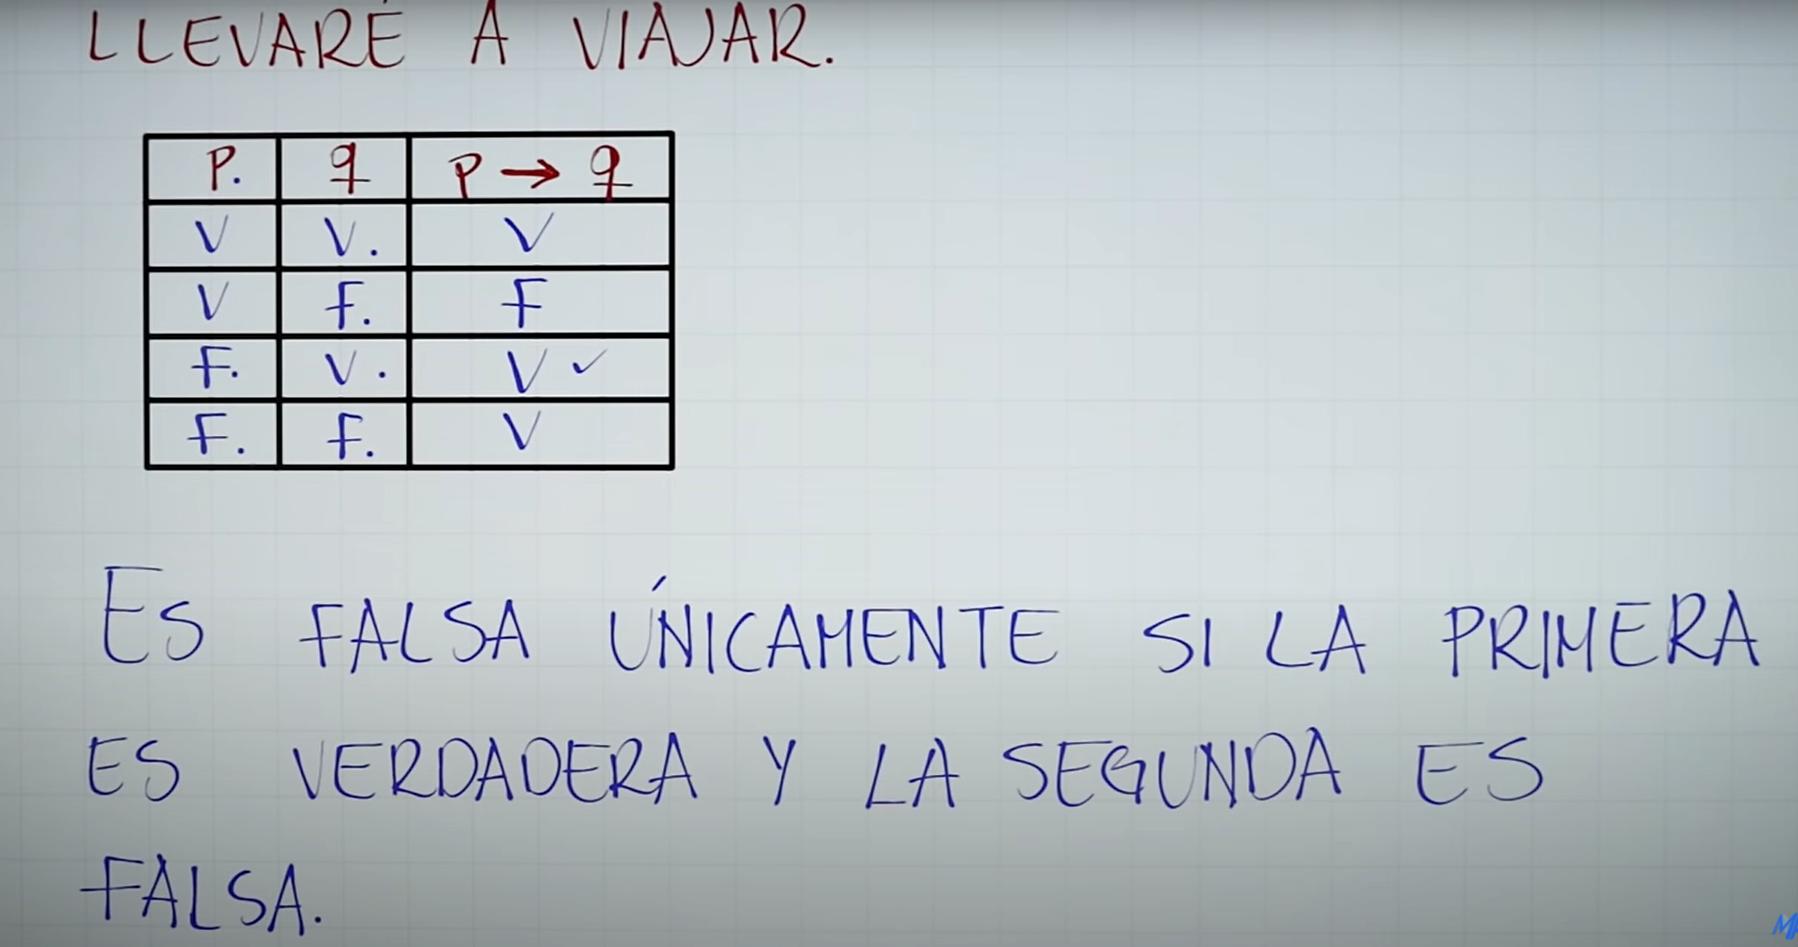 LLEVARÉ A VIAJAR.
P. q p → q
V V. V
V F. F
F. V. V ✓
F. F. V
ES FALSA ÚNICAMENTE SI LA PRIMERA
ES VERDADERA Y LA SEGUNDA ES
FALSA.